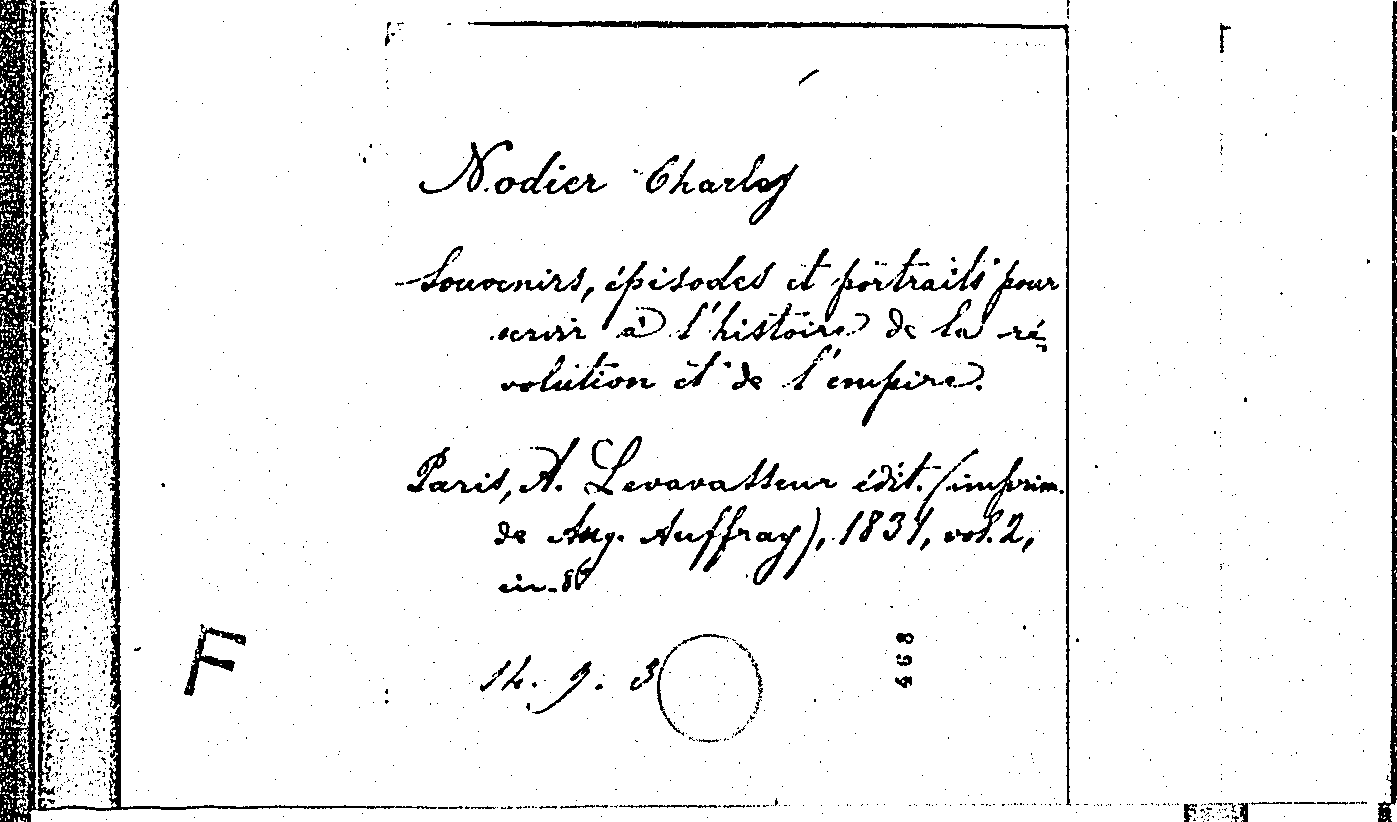 Nodier Charles
Souvenirs, épisodes et portraits pour
servir à l'histoire de la ré-
volution et de l'empire.
Paris, A. Levavasseur édit. (imprim.
de Aug. Auffray), 1831, vol. 2,
in-8°
14. 9. 3
F
468